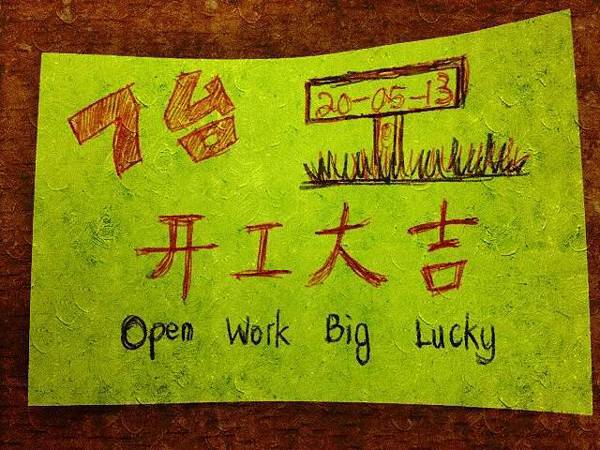 20-05-13
开工大吉
Open Work Big Lucky